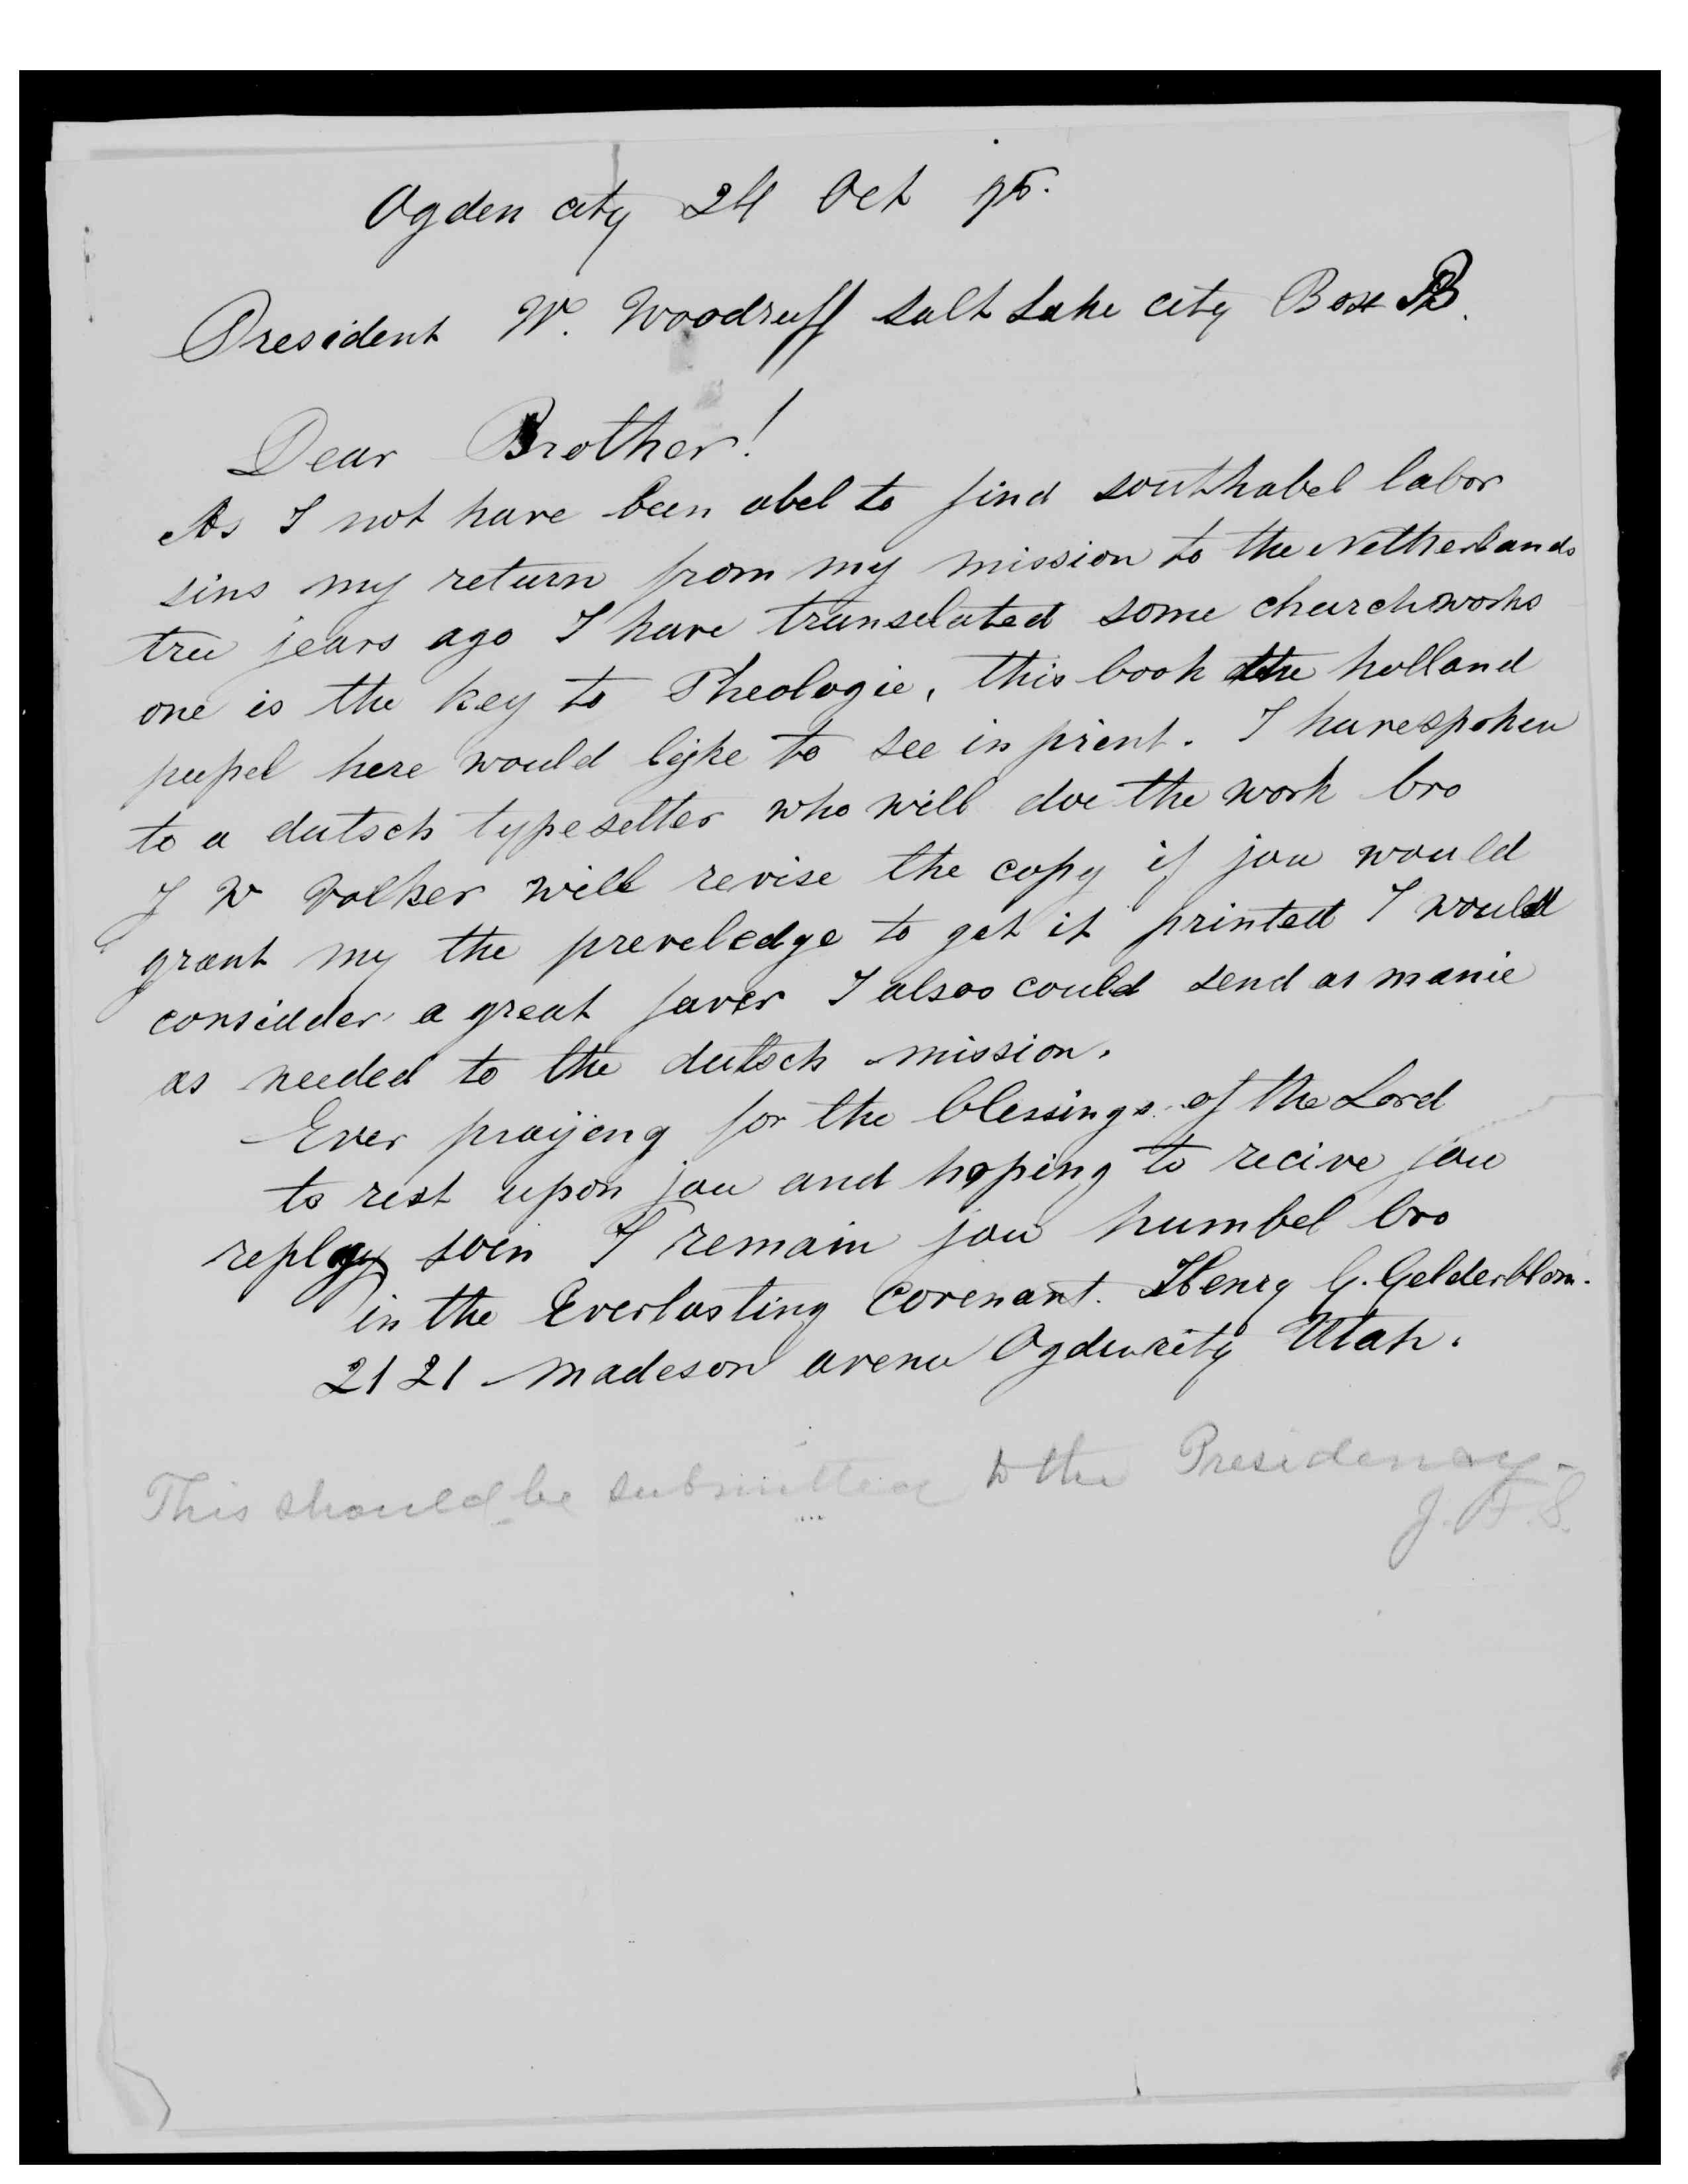 Ogden city 24 Oct 95.
President W. Woodruff Salt Lake city Box B.
Dear Brother!
As I not have been abel to find southabel labor
sins my return from my mission to the Netherlands
tree jears ago I have transelated some churchworks
one is the Key to Theologie, this book the holland
peepel here would lijke to see in print. I have spoken
to a dutsch typesetter who will doe the work bro
J W Volker will revise the copy if jou would
grant my the preveledge to get it printed I would
considder a great faver I alsoo could send as manie
as needed to the dutsch mission.
Ever praijeng for the blessings of the Lord
to rest upon jou and hoping to recive jou
reply soin I remain jou humbel bro
in the Everlasting Covenant. Henry G. Gelderblom.
2121 Madeson avenu Ogdencity Utah.
This should be submitted to the Presidency-
J. F. S.